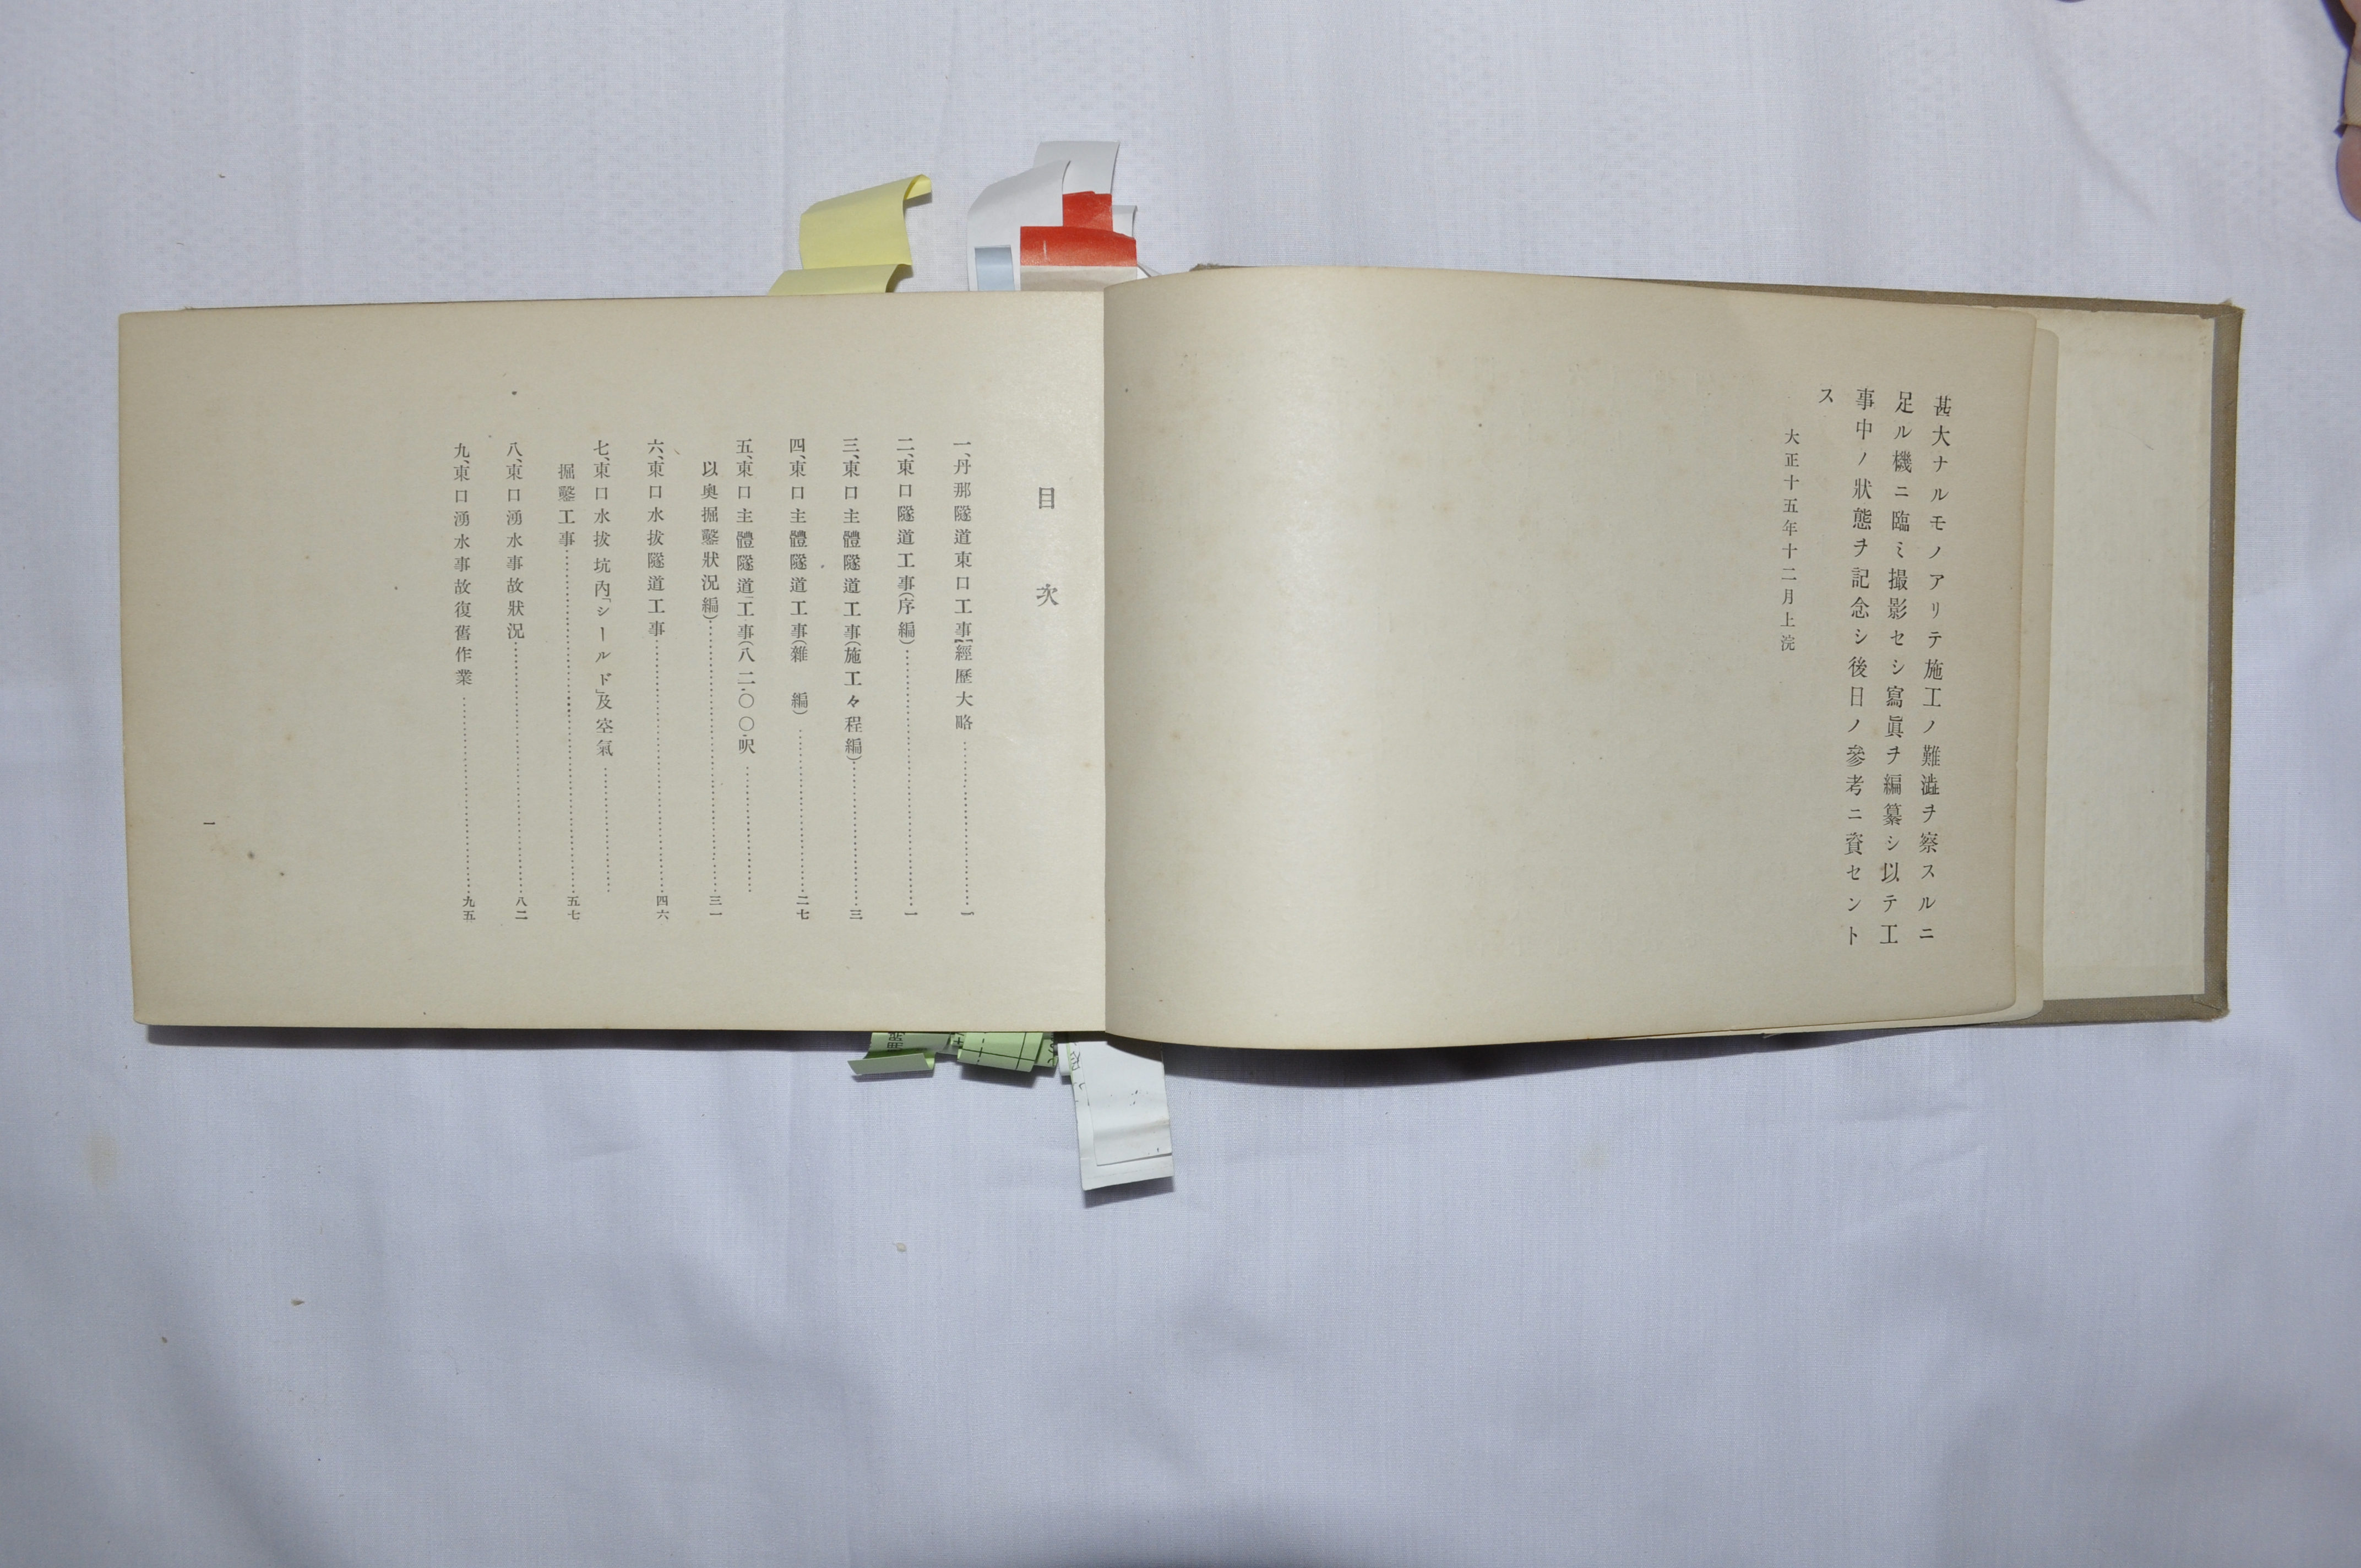 甚大ナルモノアリテ施工ノ難澁ヲ察スルニ
足ル機ニ臨ミ撮影セシ寫眞ヲ編纂シ以テ工
事中ノ狀態ヲ記念シ後日ノ參考ニ資セント
ス
大正十五年十二月上浣
目次
一、丹那隧道東口工事經歷大略………一
二、東口隧道工事(序編)………一
三、東口主體隧道工事(施工々程編)………三
四、東口主體隧道工事(雜編)………二七
五、東口主體隧道工事(八二〇〇呎………
以奥掘鑿狀況編)………三一
六、東口水拔隧道工事………四六
七、東口水拔坑內「シールド」及空氣………
掘鑿工事………五七
八、東口湧水事故狀況………八二
九、東口湧水事故復舊作業………九五
一